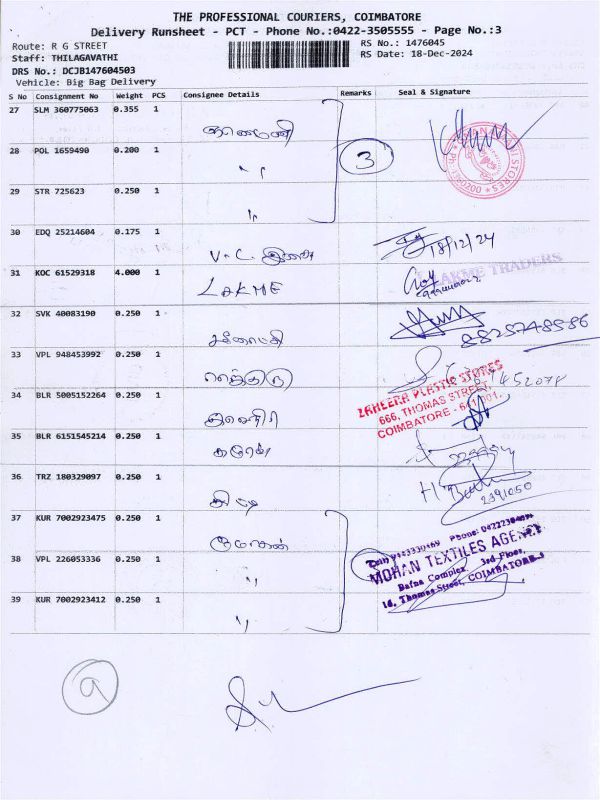 THE PROFESSIONAL COURIERS, COIMBATORE
Delivery Runsheet - PCT - Phone No.:0422-3505555 - Page No.:3
Route: R G STREET
RS No.: 1476045
Staff: THILAGAVATHI
RS Date: 18-Dec-2024
DRS No.: DCJB147604503
Vehicle: Big Bag Delivery
S No Consignment No Weight PCS Consignee Details Remarks Seal & Signature
27 SLM 360775063 0.355 1
3
28 POL 1659490 0.200 1 "
29 STR 725623 0.250 1 "
30 EDQ 25214604 0.175 1
18/12/24
31 KOC 61529318 4.000 1 LAKME
LAKME TRADERS
32 SVK 40083190 0.250 1
8825748586
33 VPL 948453992 0.250 1
34 BLR 5005152264 0.250 1
ZAHEERA PLASTIC STORES
666, THOMAS STREET,
COIMBATORE - 641001.
35 BLR 6151545214 0.250 1
36 TRZ 180329097 0.250 1
2391050
37 KUR 7002923475 0.250 1 குமோகன்
38 VPL 226053336 0.250 1 "
MOHAN TEXTILES AGENCY
Bafna Complex, 3rd Floor,
16, Thomas Street, COIMBATORE-1
39 KUR 7002923412 0.250 1 "
9